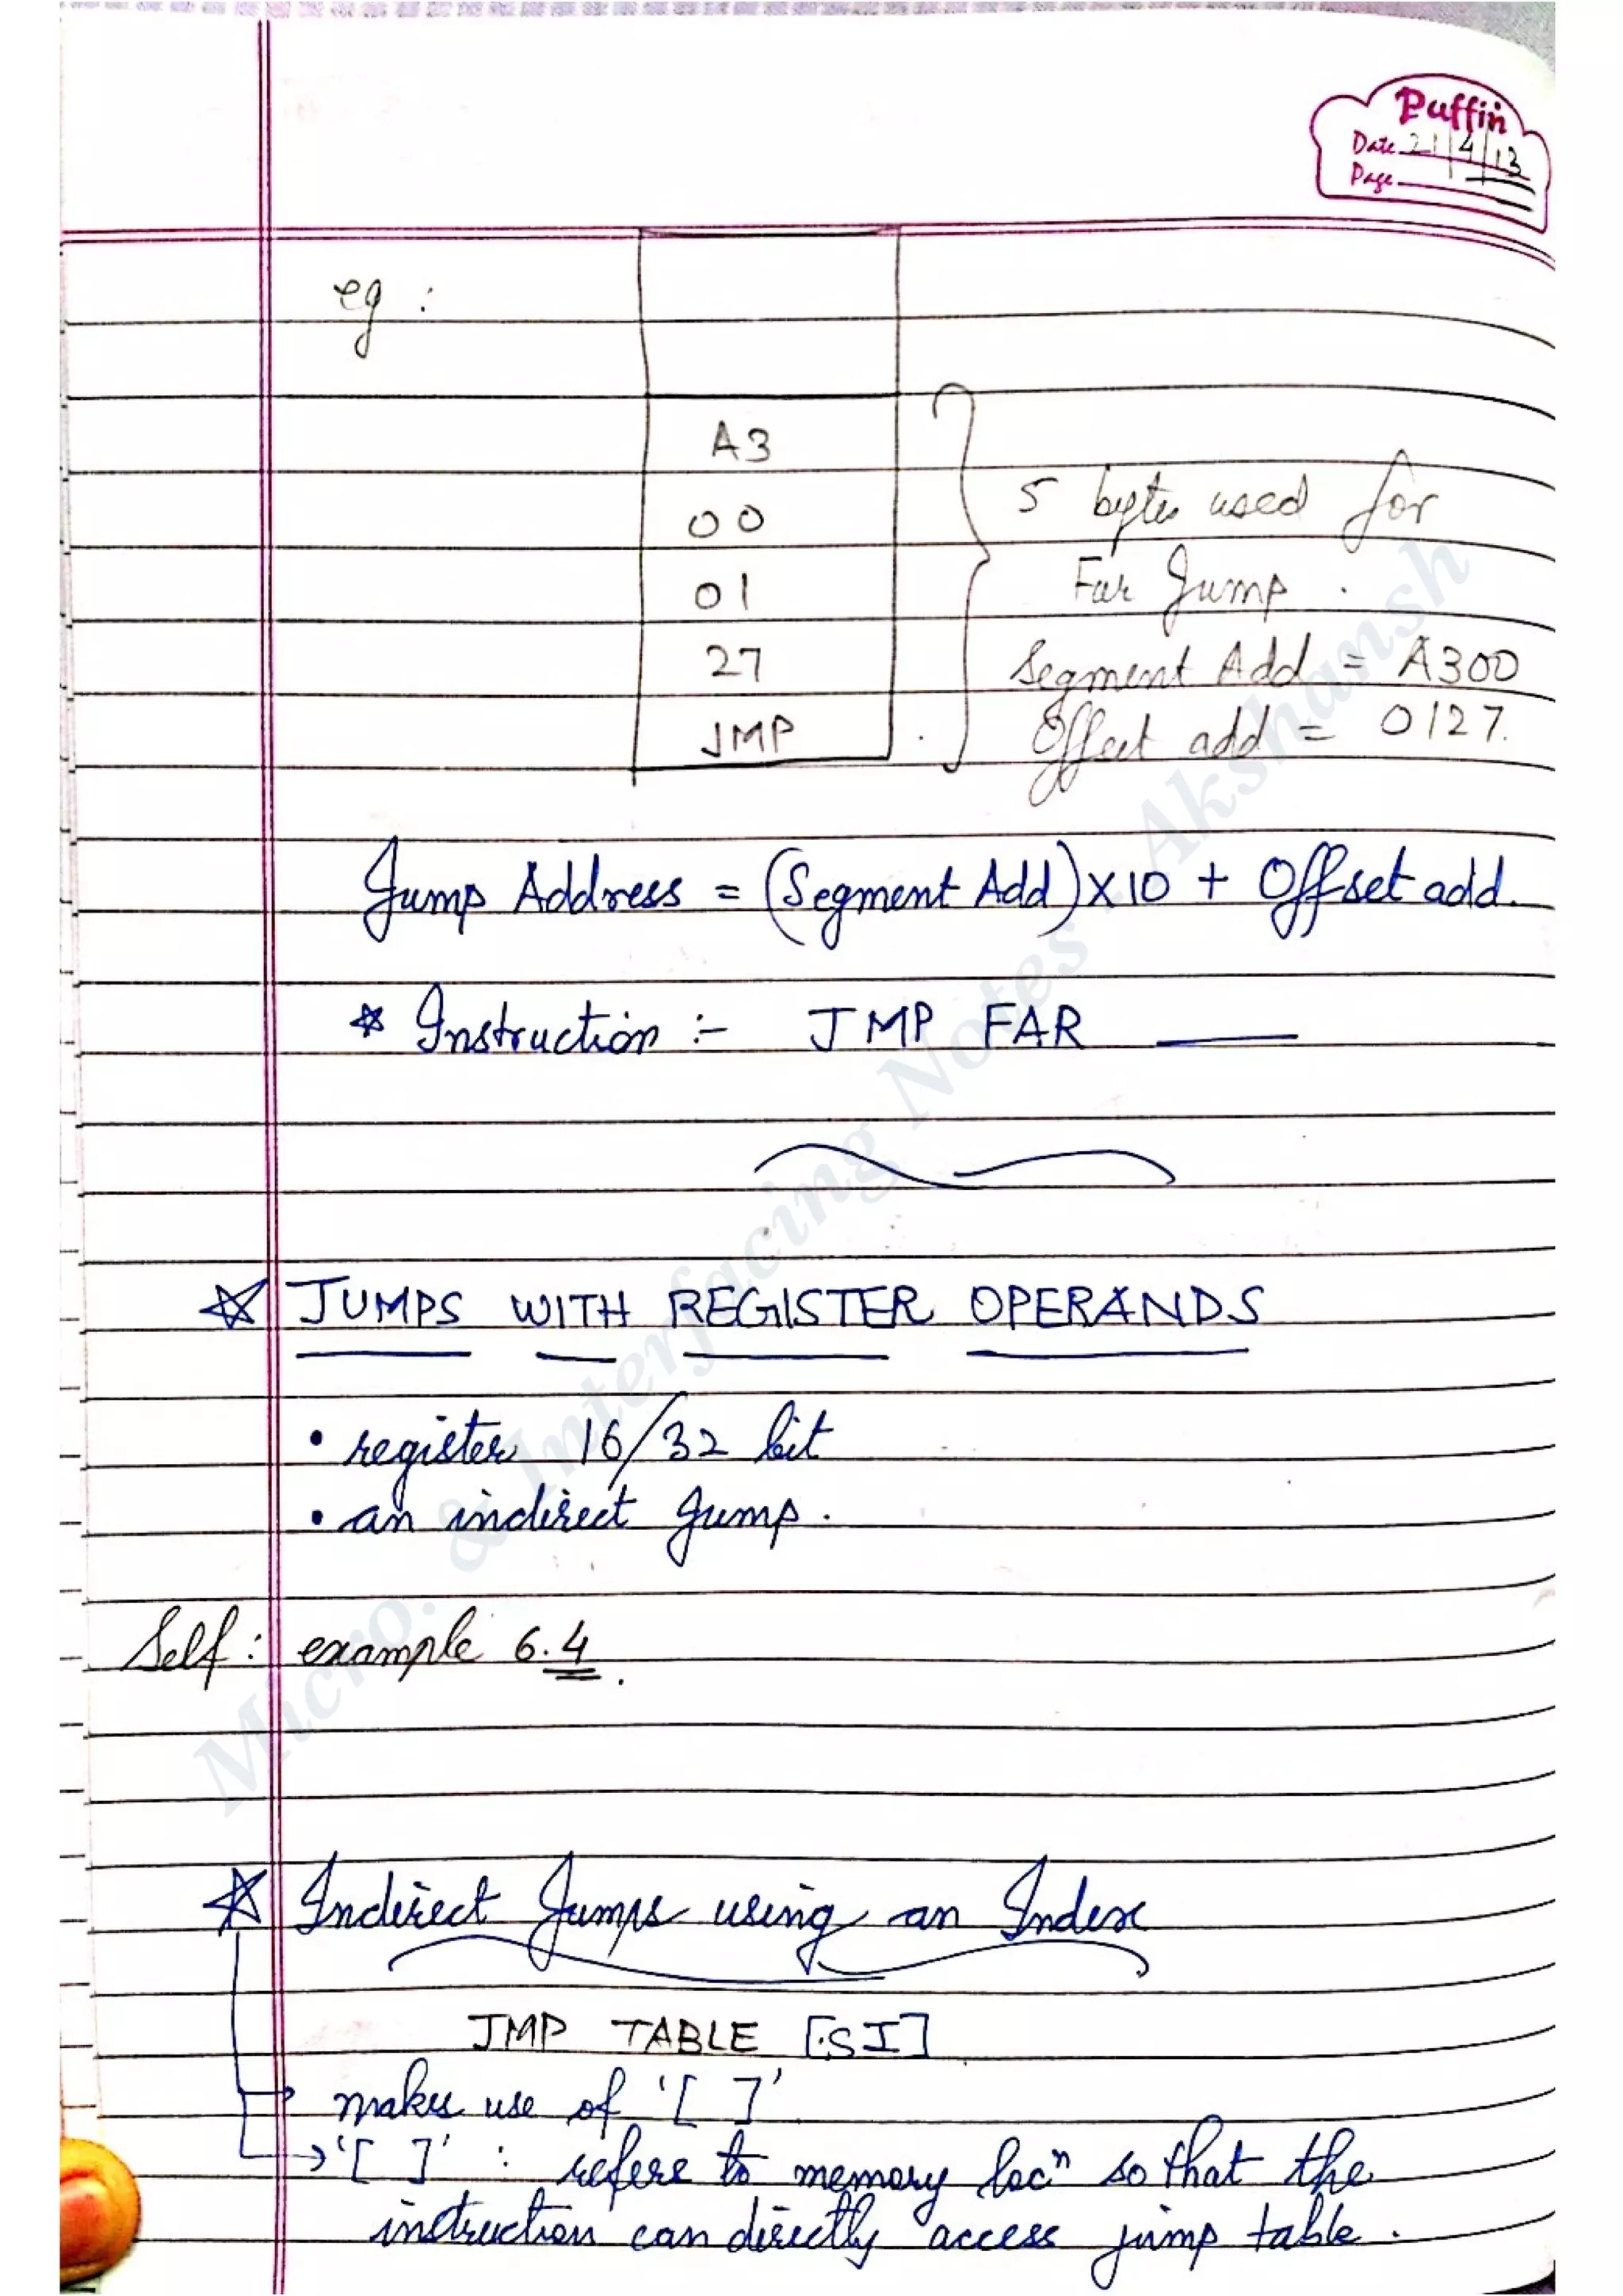 Puffin
Date 21/4/13
Page
eg :
A3
00
01
27
JMP
5 bytes used for
Far Jump .
Segment Add = A300
Offset add = 0127.
Jump Address = (Segment Add)×10 + Offset add.
* Instruction :- JMP FAR ____
☆ JUMPS WITH REGISTER OPERANDS
• register 16/32 bit
• an indirect jump .
Self : example 6.4 .
☆ Indirect Jumps using an Index
JMP TABLE [SI]
→ makes use of '[ ]'
→ '[ ]' : refers to memory locⁿ so that the
instruction can directly access jump table .
Micro. & Interfacing Notes - Akshansh